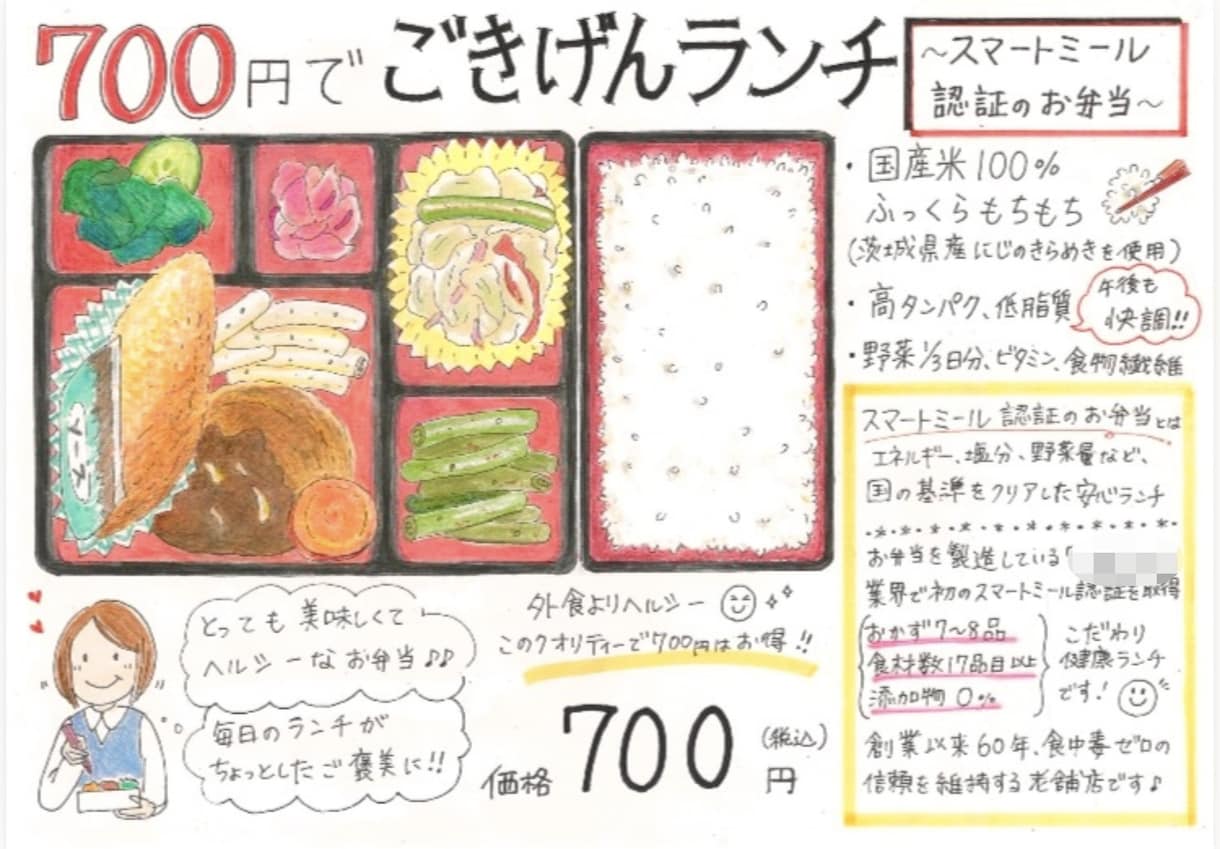 700円で ごきげんランチ
~スマートミール
認証のお弁当~
・国産米100%
ふっくらもちもち
(茨城県産にじのきらめきを使用)
・高タンパク、低脂質
午後も
快調!!
・野菜1/3日分、ビタミン、食物繊維
ソース
スマートミール認証のお弁当とは
エネルギー、塩分、野菜量など、
国の基準をクリアした安心ランチ
お弁当を製造している
業界で初のスマートミール認証を取得
おかず7~8品
食材数17品目以上
添加物0%
こだわり
健康ランチ
です!
創業以来60年、食中毒ゼロの
信頼を維持する老舗店です♪
とっても美味しくて
ヘルシーなお弁当♪♪
毎日のランチが
ちょっとしたご褒美に!!
外食よりヘルシー
このクオリティーで700円はお得!!
価格700円(税込)